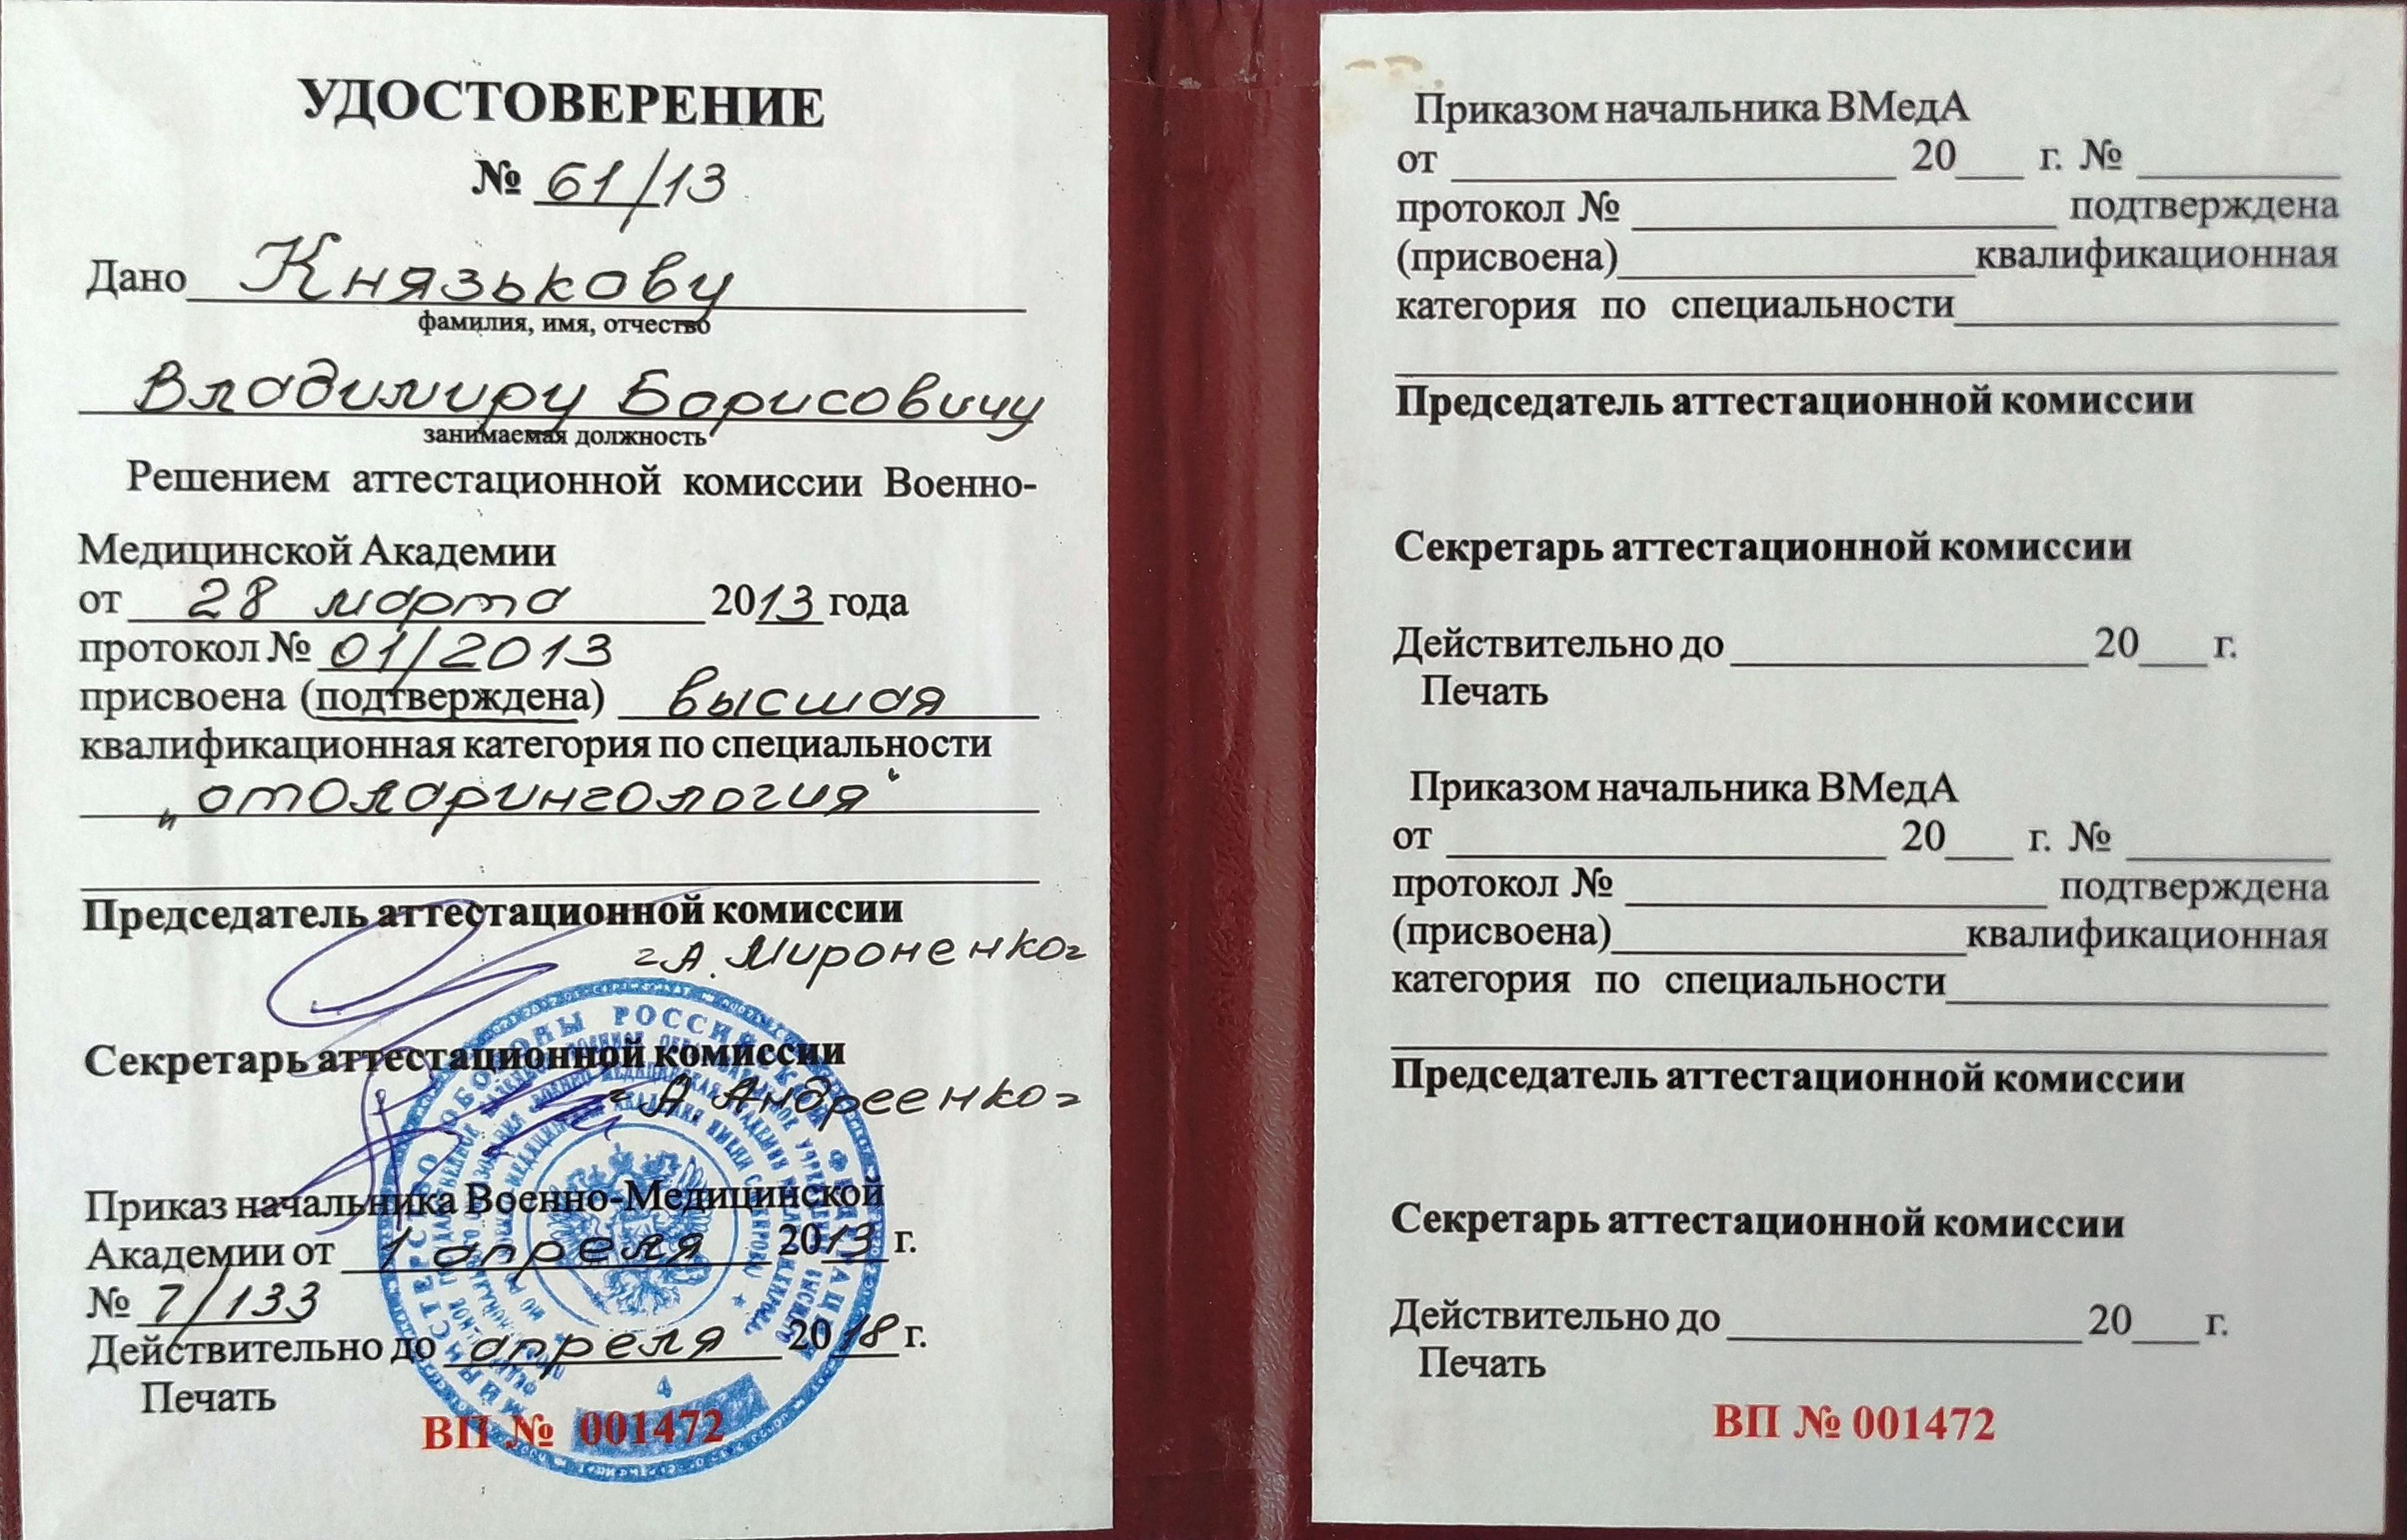 УДОСТОВЕРЕНИЕ
№ 61/13
Дано Князькову
фамилия, имя, отчество
Владимиру Борисовичу
занимаемая должность
Решением аттестационной комиссии Военно-
Медицинской Академии
от 28 марта 2013 года
протокол № 01/2013
присвоена (подтверждена) высшая
квалификационная категория по специальности
„отоларингология“
Председатель аттестационной комиссии
А. Мироненко
Секретарь аттестационной комиссии
А. Андреенко
Приказ начальника Военно-Медицинской
Академии от 1 апреля 2013 г.
№ 7/133
Действительно до апреля 2018 г.
Печать
4
ВП № 001472
МИНИСТЕРСТВО ОБОРОНЫ РОССИЙСКОЙ ФЕДЕРАЦИИ
Приказом начальника ВМедА
от 20 г. №
протокол № подтверждена
(присвоена) квалификационная
категория по специальности
Председатель аттестационной комиссии
Секретарь аттестационной комиссии
Действительно до 20 г.
Печать
Приказом начальника ВМедА
от 20 г. №
протокол № подтверждена
(присвоена) квалификационная
категория по специальности
Председатель аттестационной комиссии
Секретарь аттестационной комиссии
Действительно до 20 г.
Печать
ВП № 001472